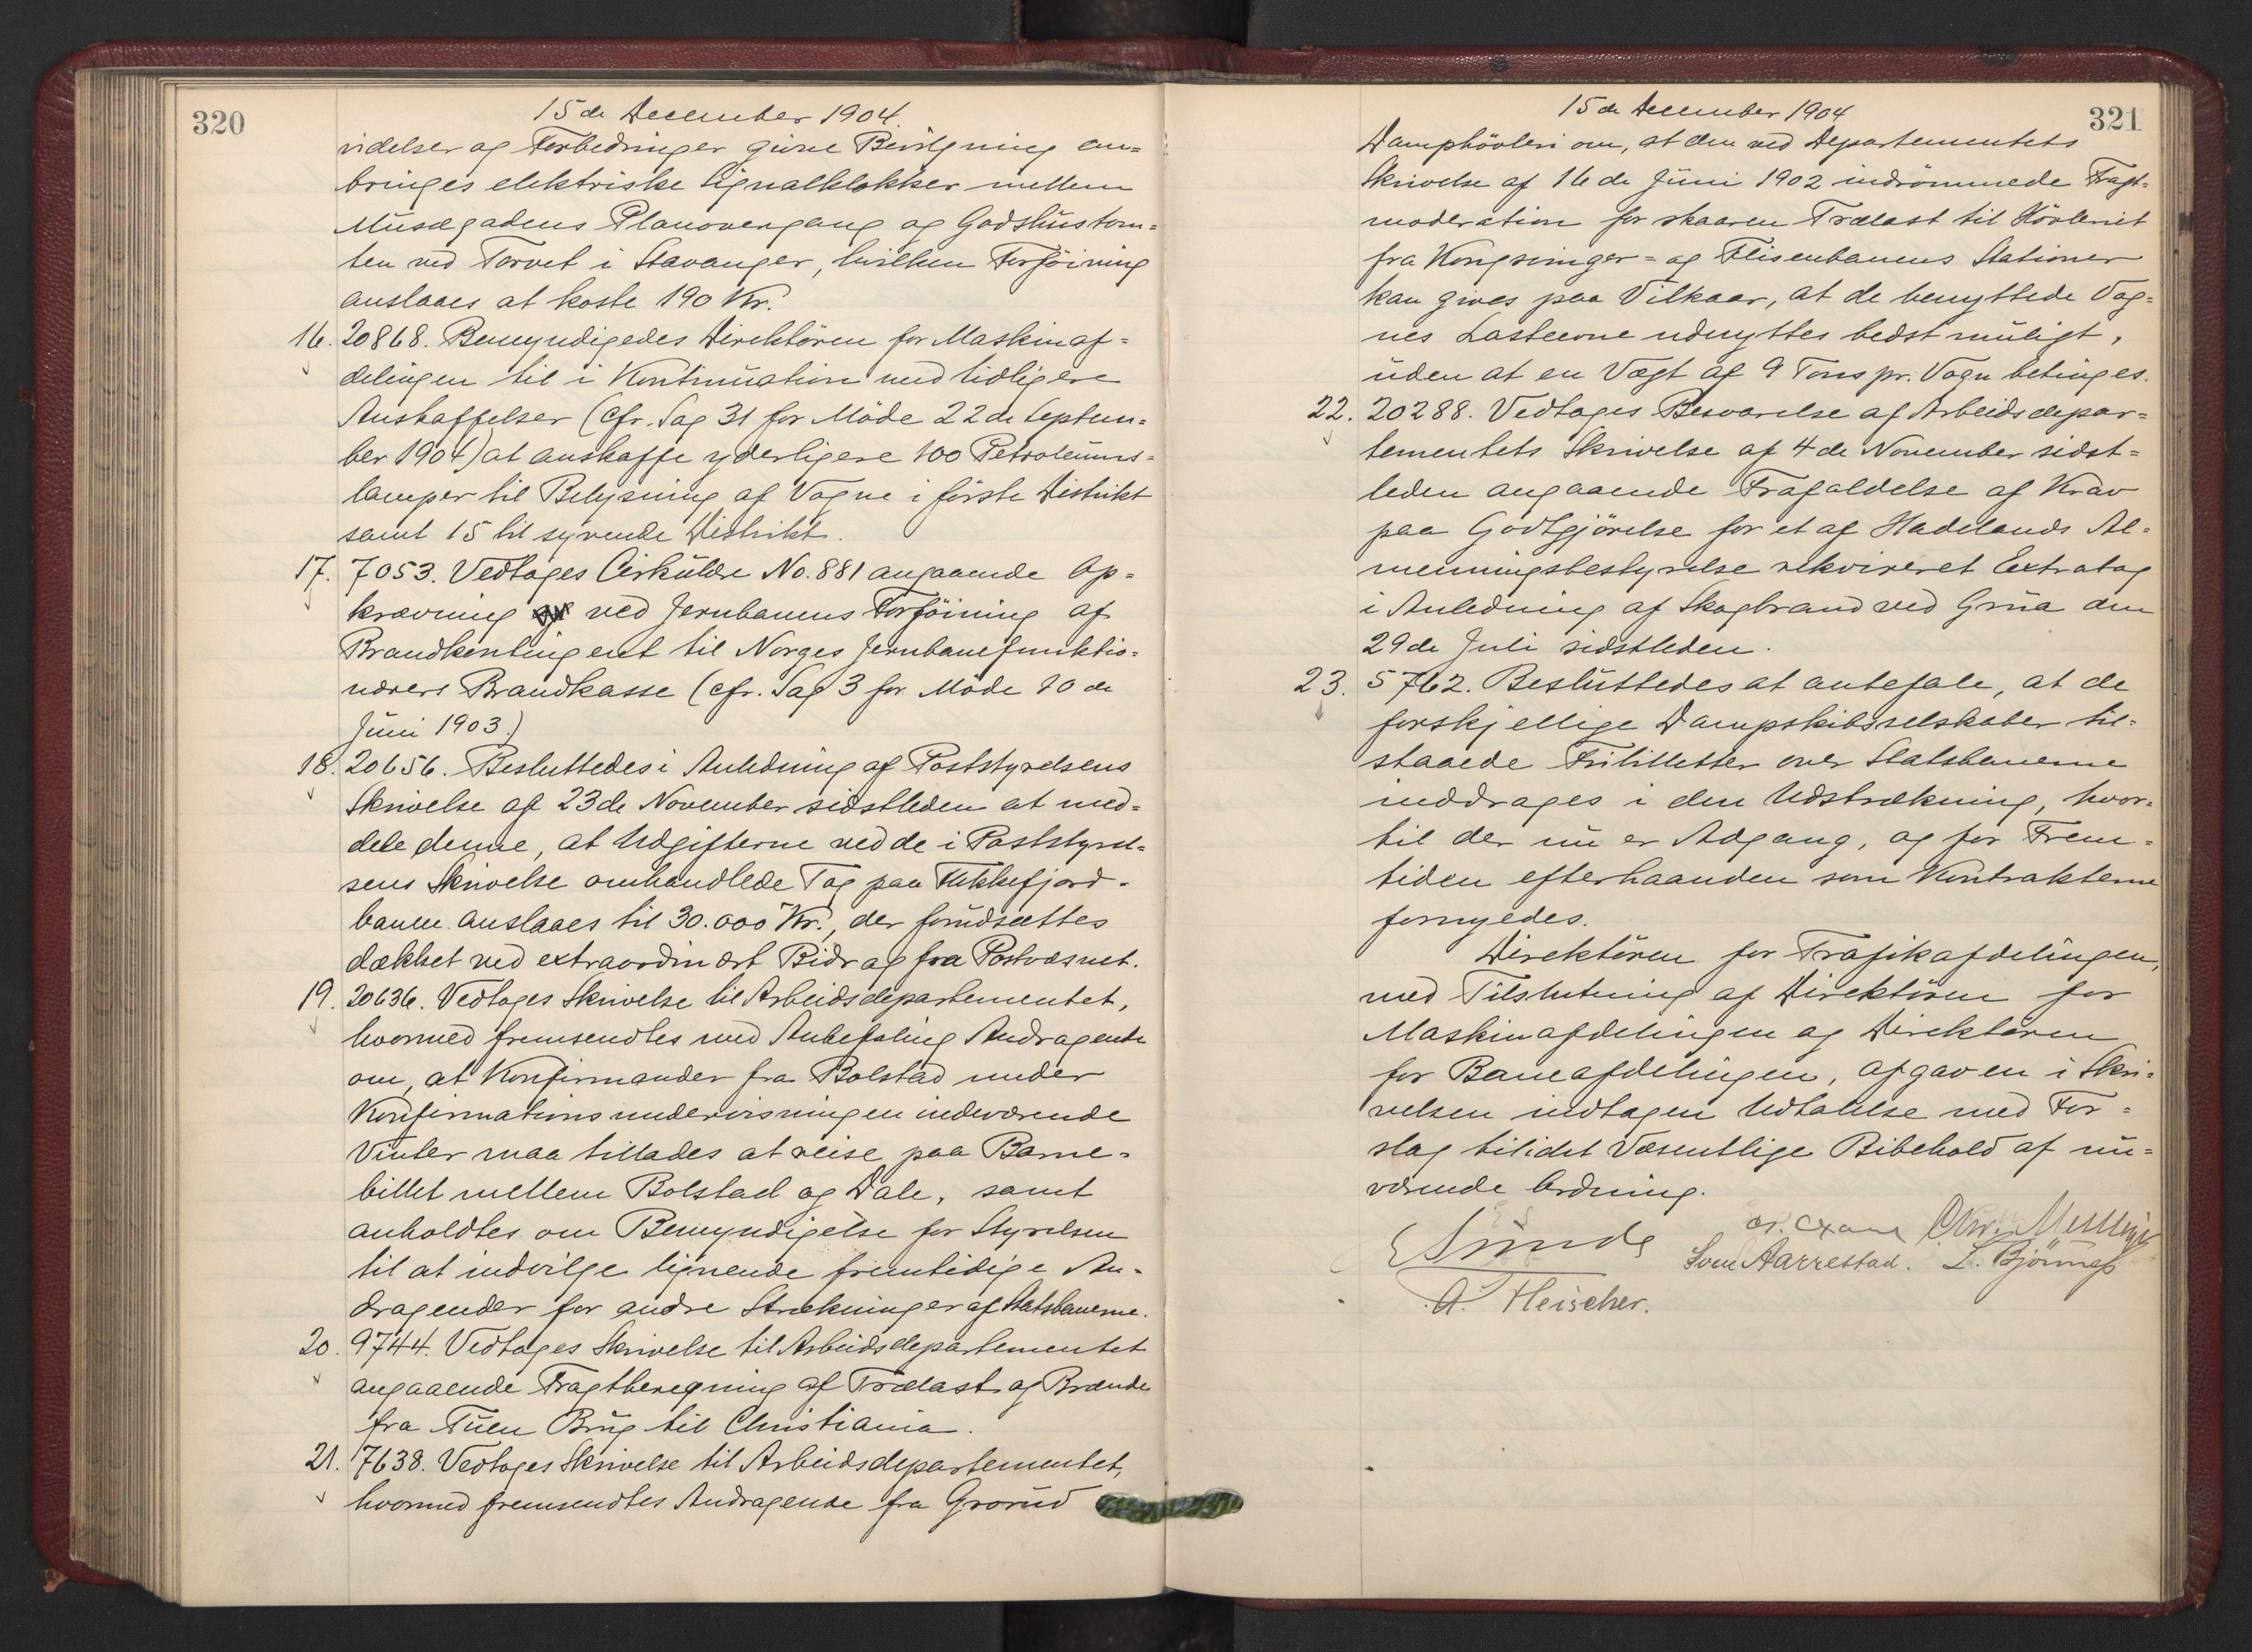 320
15de December 1904.
videlser og Forbedringer givne Bevilgning an=
bringes elektriske Signalklokker mellem
Musægadens Planovergang og Godshustom=
ten ved Torvet i Stavanger, hvilken Forföining
anslaaes at koste 190 Kr.
16. 20868. Bemyndigedes Direktören for Maskinaf=
delingen til i Kontinuation med tidligere
Anskaffelser (cfr. Sag 31 for Möde 22de Septem=
ber 1904) at anskaffe yderligere 100 Petroleums=
lamper til Belysning af Vogne i förste Distrikt
samt 15 til syvende Distrikt.
17. 7053. Vedtoges Cirkulære No. 881 angaaende Op=
krævning ved Jernbanens Forföining af
Brandkontingent til Norges Jernbanefunktio=
nærers Brandkasse (cfr. Sag 3 for Möde 10de
Juni 1903.)
18. 20656. Besluttedes i Anledning af Poststyrelsens
Skrivelse af 23de November sidstleden at med=
dele denne, at Udgifterne ved de i Poststyrel=
sens Skrivelse omhandlede Tog paa Flekkefjord-
banen anslaaes til 30.000 Kr., der forudsættes
dækket ved extraordinært Bidrag fra Postvæsnet.
19. 20636. Vedtoges Skrivelse til Arbeidsdepartementet,
hvormed fremsendtes med Anbefaling Andragende
om, at Konfirmander fra Bolstad under
Konfirmationsundervisningen indeværende
Vinter maa tillades at reise paa Barne-
billet mellem Bolstad og Dale, samt
anholdtes om Bemyndigelse for Styrelsen
til at indvilge lignende fremtidige An-
dragender for andre Strækninger af Statsbanerne.
20. 9744. Vedtoges Skrivelse til Arbeidsdepartementet
angaaende Fragtberegning af Trælast og Brænde
fra Tuen Brug til Christiania.
21. 7638. Vedtoges Skrivelse til Arbeidsdepartementet,
hvormed fremsendtes Andragende fra Grorud
321
15de December 1904
Damphövleri om, at den ved Departementets
Skrivelse af 16de Juni 1902 indrömmede Fragt-
moderation for skaaren Trælast til Hövleriet
fra Kongsvinger- og Flisenbanens Stationer
kan gives paa Vilkaar, at de benyttede Vog=
nes Lasteevne udnyttes bedst muligt,
uden at en Vægt af 9 Tons pr. Vogn betinges.
22. 20288. Vedtoges Besvarelse af Arbeidsdepar=
tementets Skrivelse af 4de November sidst=
leden angaaende Frafaldelse af Krav
paa Godtgjörelse for et af Hadelands Al=
menningsbestyrelse rekvireret Extratog
i Anledning af Skogbrand ved Grua den
29de Juli sidstleden.
23. 5762. Besluttedes at anbefale, at de
forskjellige Dampskibsselskaber til=
staaede Fribilletter over Statsbanerne
inddrages i den Udstrækning, hvor=
til der nu er Adgang, og for Frem=
tiden efterhaanden som Kontrakterne
fornyedes.
Direktören for Trafikafdelingen,
med Tilslutning af Direktören for
Maskinafdelingen og Direktören
for Baneafdelingen, afgav en i Skri=
velsen indtagen Udtalelse med For=
slag til idet Væsentlige Bibehold af nu=
værende Ordning.
ESunde Chr.
Sven Aarrestad. L. Björnnæs
A. Fleischer.